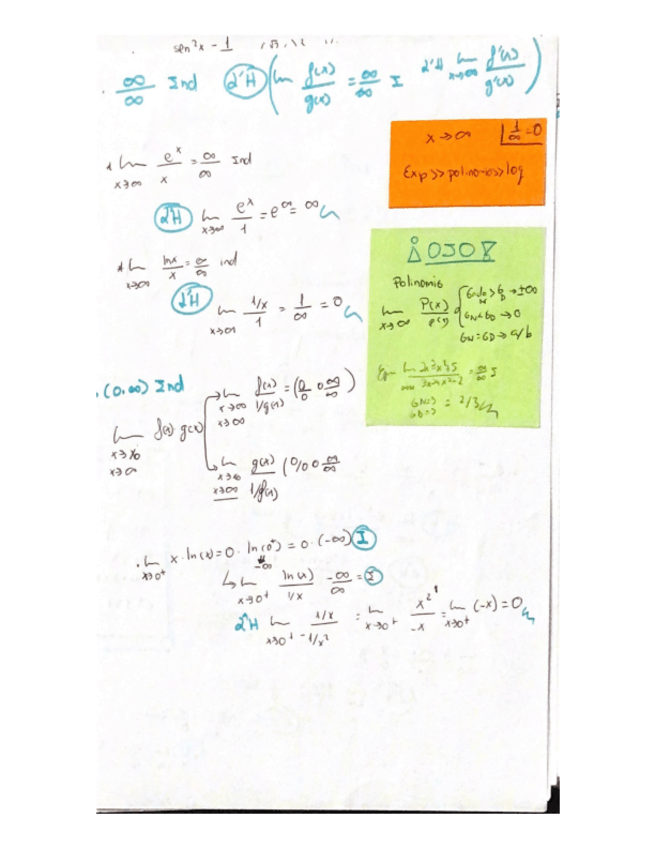 sen²x - 1
∞/∞ Ind L'H ( lim f(x)/g(x) = ∞/∞ I L'H lim x→∞ f'(x)/g'(x) )
x→∞ 1/∞ = 0
Exp >> polinomios >> log
lim x→∞ e^x/x = ∞/∞ Ind
L'H lim x→∞ e^x/1 = e^∞ = ∞
lim x→∞ lnx/x = ∞/∞ ind
L'H lim x→∞ 1/x/1 = 1/∞ = 0
¡OJO!
Polinomio
lim x→∞ P(x)
GN>GD → ±∞
GN<GD → 0
GN=GD → a/b
= ∞/∞ I
= 2/3
. (0·∞) Ind
lim x→x₀ x→∞ f(x) g(x)
lim x→∞ x→∞ f(x)/1/g(x) = (0/0 o ∞/∞)
lim x→x₀ x→∞ g(x)/1/f(x) (0/0 o ∞/∞
. lim x→0⁺ x·ln(x) = 0·ln(0⁺) = 0·(-∞) I
-∞
lim x→0⁺ ln(x)/1/x -∞/∞ = I
L'H lim x→0⁺ 1/x/-1/x² = lim x→0⁺ x²/-x = lim x→0⁺ (-x) = 0